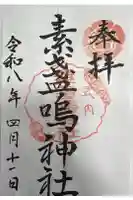 奉拝
素盞嗚神社
令和八年四月十一日